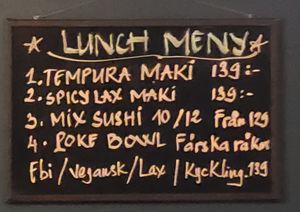 ★ LUNCH MENY ★
1. TEMPURA MAKI 139:-
2. SPICY LAX MAKI 139:-
3. MIX SUSHI 10/12 Från 129
4. POKE BOWL Färska räkor
Ebi / Vegansk / Lax / Kyckling. 139